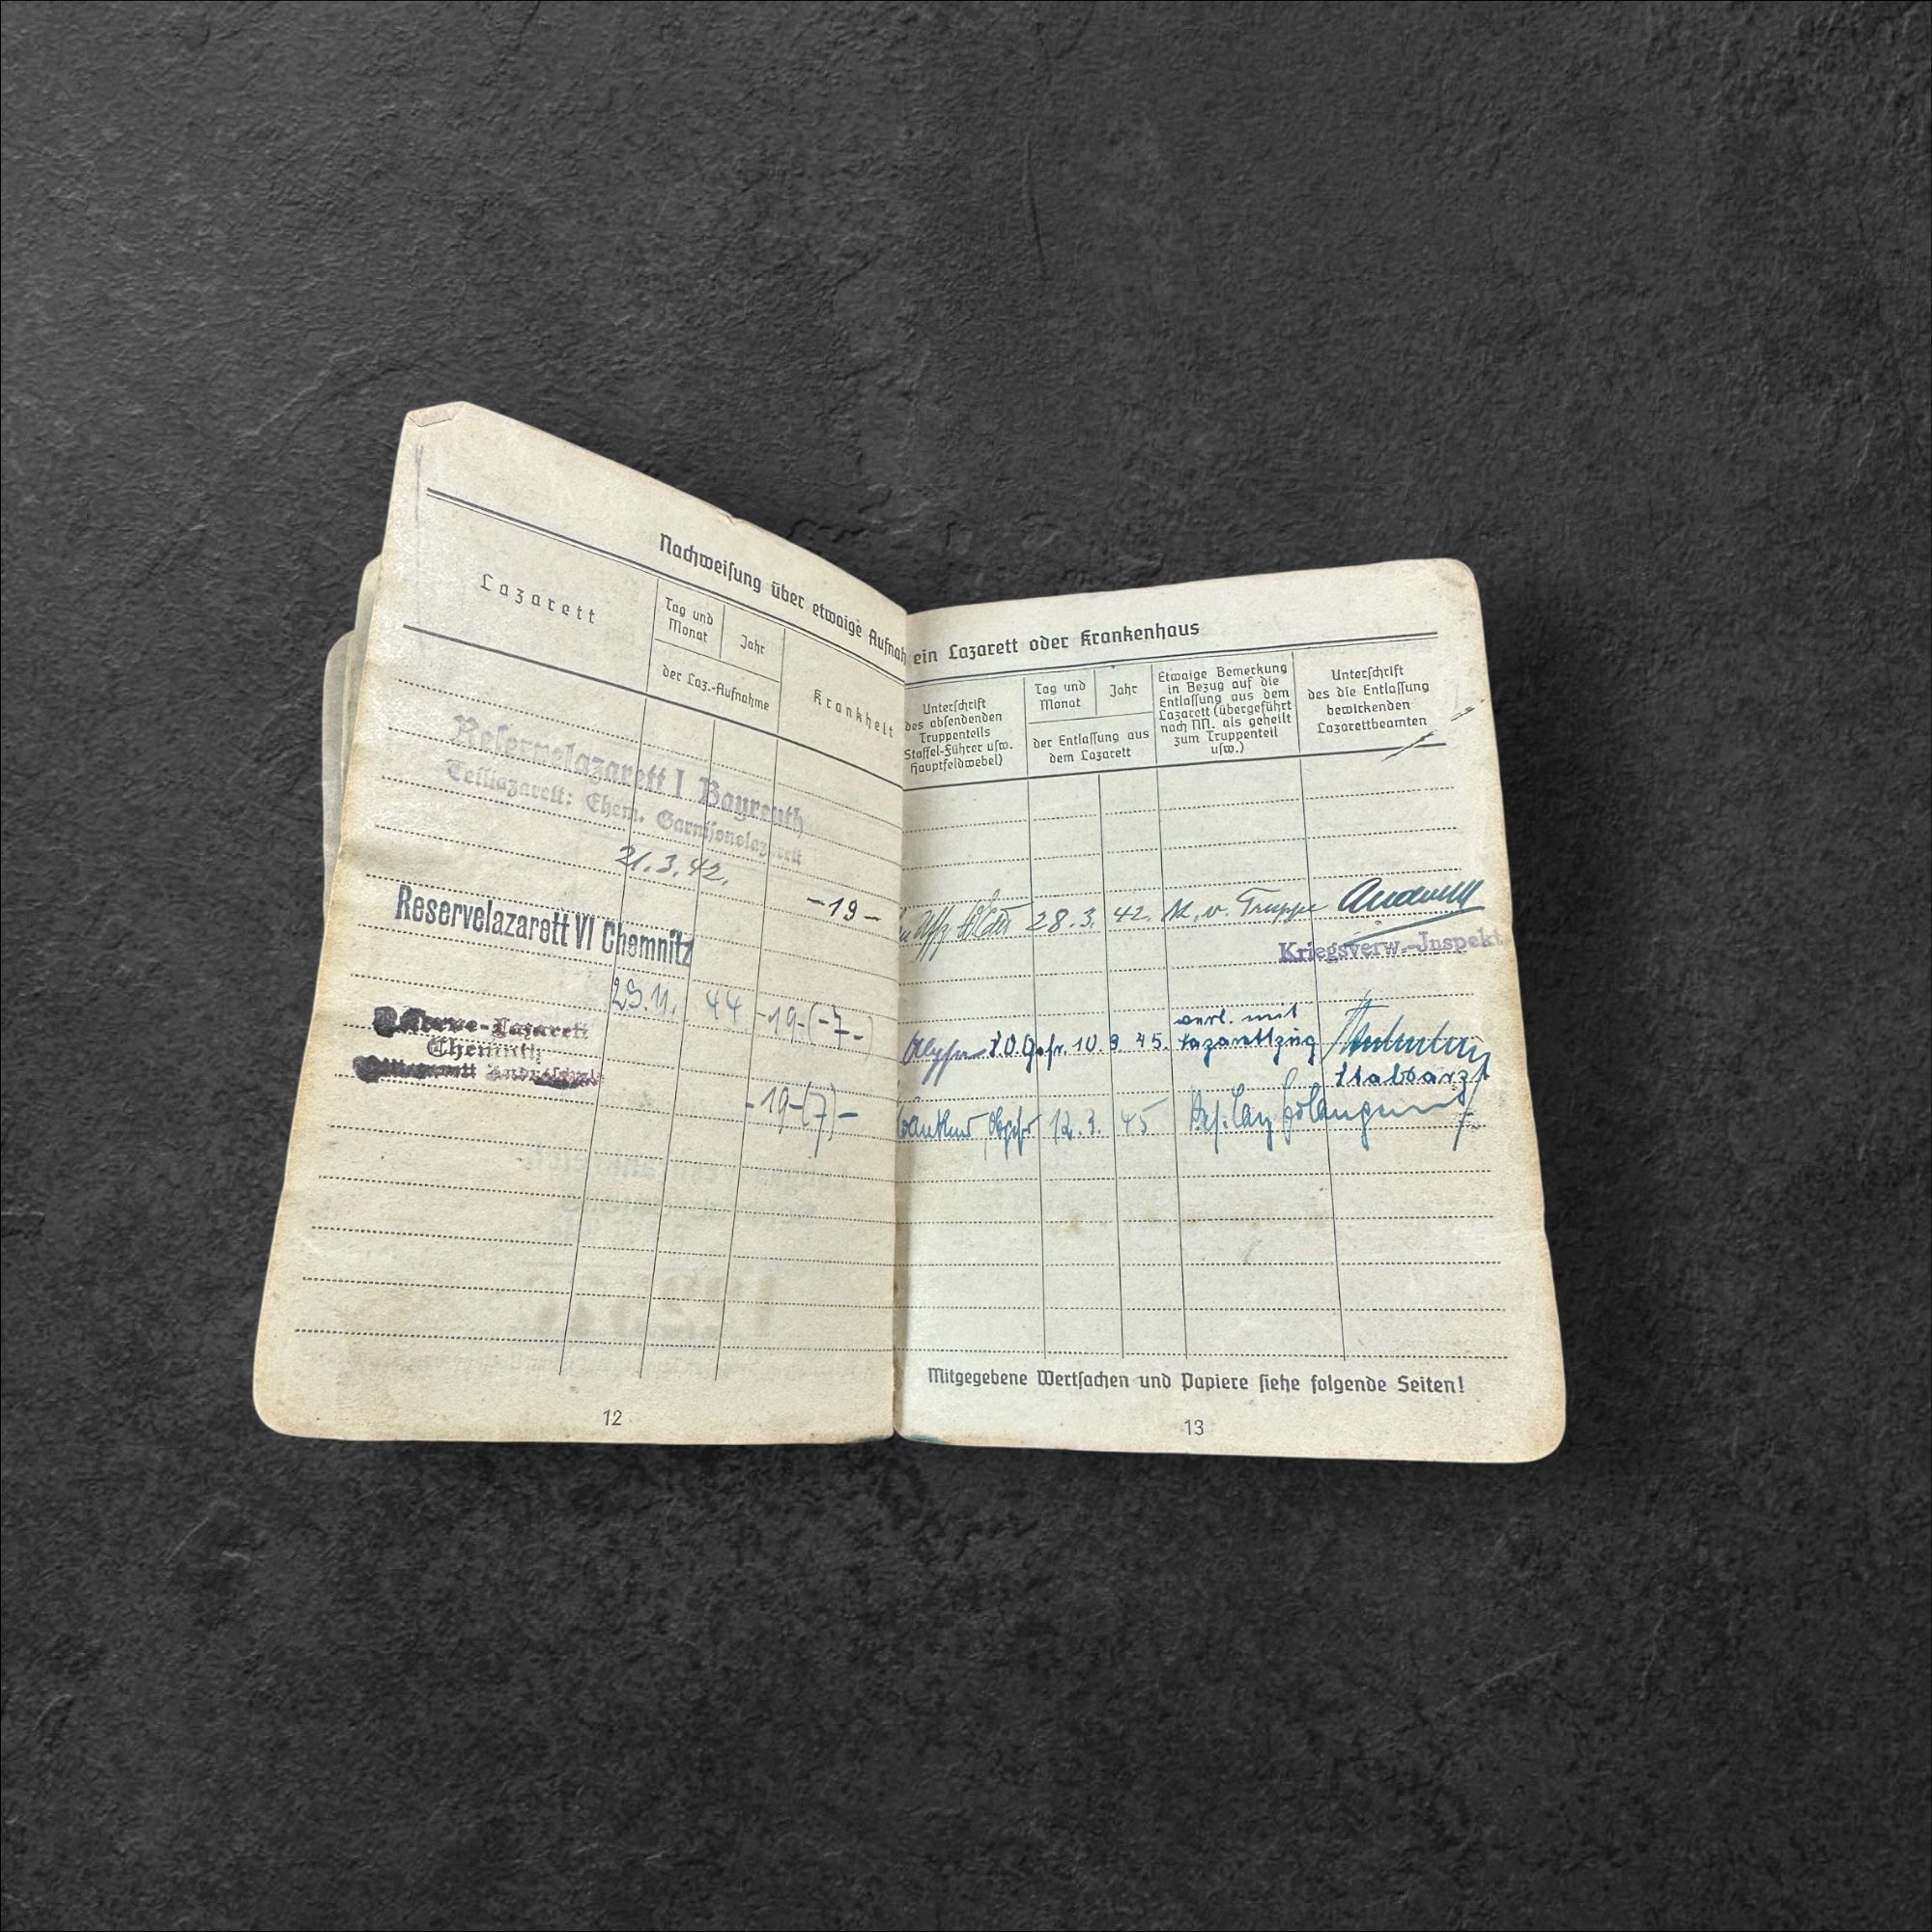 Nachweisung über etwaige Aufnah
Lazarett
Tag und
Monat
Jahr
der Laz.-Aufnahme
Krankheit
Reservelazarett I Bayreuth
Teillazarett: Ehem. Garnisonslazarett
21.3.42.
-19-
Reservelazarett VI Chemnitz
44 -19-(-7-)
Reserve-Lazarett
Chemnitz
-19-(7)-
12
ein Lazarett oder Krankenhaus
Unterschrift
des absendenden
Truppenteils
Staffel-Führer usw.
Hauptfeldwebel)
Tag und
Monat
Jahr
der Entlassung aus
dem Lazarett
Etwaige Bemerkung
in Bezug auf die
Entlassung aus dem
Lazarett (übergeführt
nach NN. als geheilt
zum Truppenteil
usw.)
Unterschrift
des die Entlassung
bewirkenden
Lazarettbeamten
Uffz 28.3. 42. k. v. Truppe
Kriegsverw.-Inspekt
verl. mit
10. 3. 45. Lazarettzug
Stabsarzt
12.3. 45 Res. Laz
Mitgegebene Wertsachen und Papiere siehe folgende Seiten!
13